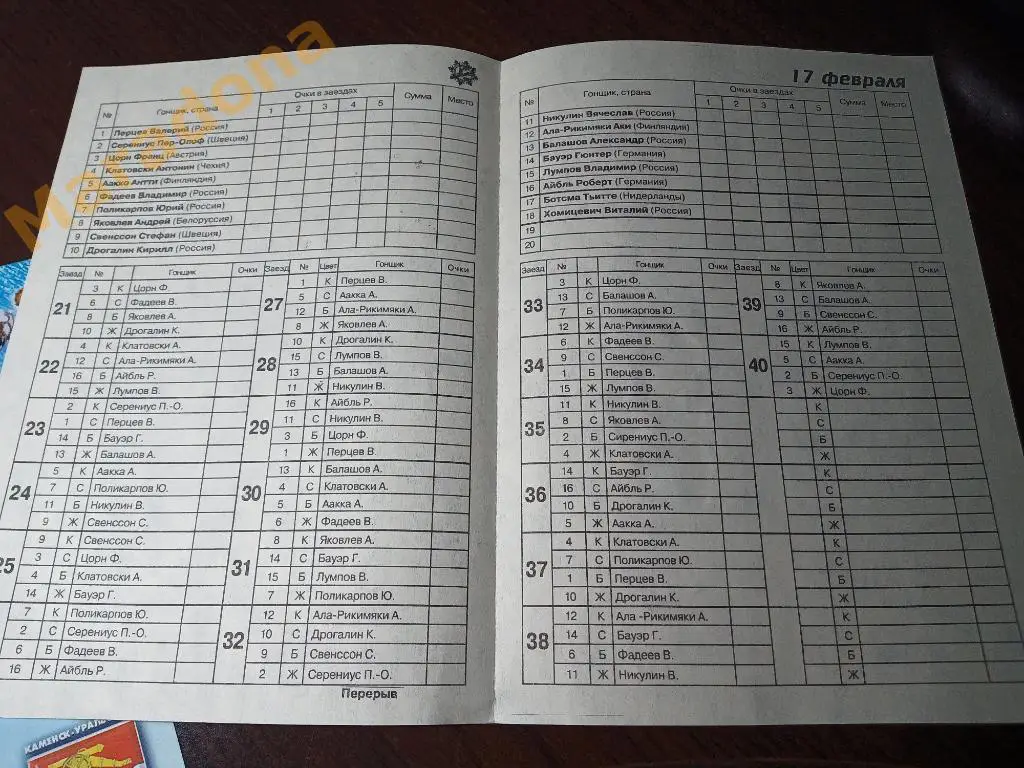 17 февраля
№ Гонщик, страна Очки в заездах Сумма Место
1 2 3 4 5
1 Перцев Валерий (Россия)
2 Серениус Пер-Олоф (Швеция)
3 Цорн Франц (Австрия)
4 Клатовски Антонин (Чехия)
5 Аакко Антти (Финляндия)
6 Фадеев Владимир (Россия)
7 Поликарпов Юрий (Россия)
8 Яковлев Андрей (Белоруссия)
9 Свенссон Стефан (Швеция)
10 Дрогалин Кирилл (Россия)
Заезд № Гонщик Очки
21
3 К Цорн Ф.
6 С Фадеев В.
8 Б Яковлев А.
10 Ж Дрогалин К.
22
4 К Клатовски А.
12 С Ала-Рикимяки А.
16 Б Айбль Р.
15 Ж Лумпов В.
23
2 К Серениус П.-О.
1 С Перцев В.
14 Б Бауэр Г.
13 Ж Балашов А.
24
5 К Аакка А.
7 С Поликарпов Ю.
11 Б Никулин В.
9 Ж Свенссон С.
25
9 К Свенссон С.
3 С Цорн Ф.
4 Б Клатовски А.
14 Ж Бауэр Г.
7 К Поликарпов Ю.
2 С Серениус П.-О.
6 Б Фадеев В.
16 Ж Айбль Р.
Заезд № Цвет Гонщик Очки
27
1 К Перцев В.
5 С Аакка А.
12 Б Ала-Рикимяки А.
8 Ж Яковлев А.
28
10 К Дрогалин К.
15 С Лумпов В.
13 Б Балашов А.
11 Ж Никулин В.
29
16 К Айбль Р.
11 С Никулин В.
3 Б Цорн Ф.
1 Ж Перцев В.
30
13 К Балашов А.
4 С Клатовски А.
5 Б Аакка А.
6 Ж Фадеев В.
31
8 К Яковлев А.
14 С Бауэр Г.
15 Б Лумпов В.
7 Ж Поликарпов Ю.
32
12 К Ала-Рикимяки А.
10 С Дрогалин К.
9 Б Свенссон С.
2 Ж Серениус П.-О.
Перерыв
№ Гонщик, страна Очки в заездах Сумма Место
1 2 3 4 5
11 Никулин Вячеслав (Россия)
12 Ала-Рикимяки Аки (Финляндия)
13 Балашов Александр (Россия)
14 Бауэр Гюнтер (Германия)
15 Лумпов Владимир (Россия)
16 Айбль Роберт (Германия)
17 Ботсма Тьитте (Нидерланды)
18 Хомицевич Виталий (Россия)
19
20
Заезд № Гонщик Очки
33
3 К Цорн Ф.
13 С Балашов А.
7 Б Поликарпов Ю.
12 Ж Ала-Рикимяки А.
34
6 К Фадеев В.
9 С Свенссон С.
1 Б Перцев В.
15 Ж Лумпов В.
35
11 К Никулин В.
8 С Яковлев А.
2 Б Сирениус П.-О.
4 Ж Клатовски А.
36
14 К Бауэр Г.
16 С Айбль Р.
10 Б Дрогалин К.
5 Ж Аакка А.
37
4 К Клатовски А.
7 С Поликарпов Ю.
1 Б Перцев В.
10 Ж Дрогалин К.
38
12 К Ала -Рикимяки А.
14 С Бауэр Г.
6 Б Фадеев В.
11 Ж Никулин В.
Заезд № Цвет Гонщик Очки
39
8 К Яковлев А.
13 С Балашов А.
9 Б Свенссон С.
16 Ж Айбль Р.
40
15 К Лумпов В.
5 С Аакка А.
2 Б Серениус П.-О.
3 Ж Цорн Ф.
К
С
Б
Ж
К
С
Б
Ж
К
С
Б
Ж
К
С
Б
Ж